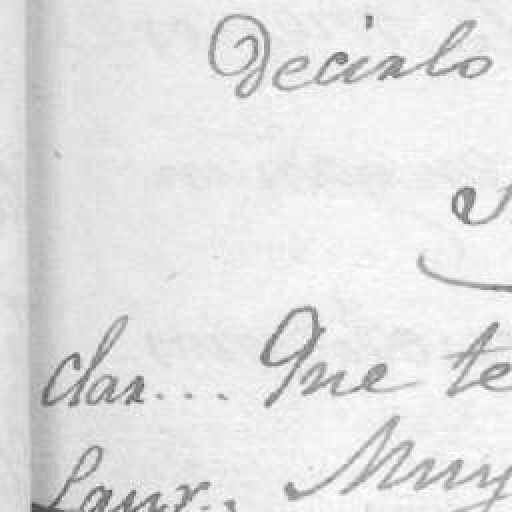 Decirlo
clar... Que te
Laur., Muy